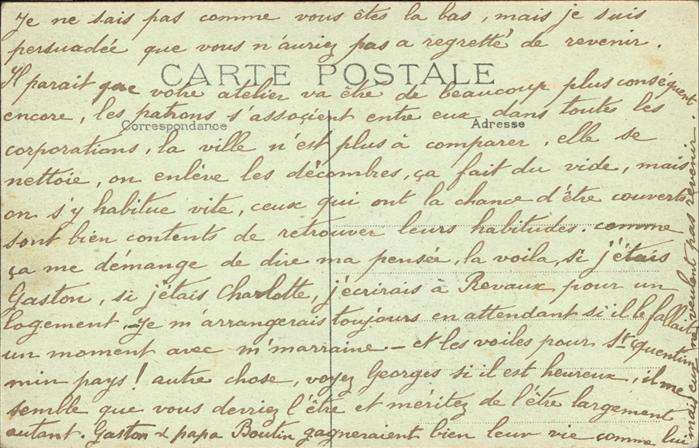 Je ne sais pas comme vous êtes la bas, mais je suis
persuadée que vous n'auriez pas a regretté de revenir.
CARTE POSTALE
Il parait que votre atelier va être de beaucoup plus conséquent
encore, les patrons s'associent entre eux dans toutes les
Correspondance
Adresse
corporations, la ville n'est plus à comparer, elle se
nettoie, on enlève les décombres, ça fait du vide, mais
on s'y habitue vite, ceux qui ont la chance d'être couverts
sont bien contents de retrouver leurs habitudes. comme
ça me démange de dire ma pensée, la voila, si j'étais
Gaston, si j'étais Charlotte, j'écrirais à Revaux pour un
logement. Je m'arrangerais toujours en attendant si il le fallait
un moment avec m'marraine - et les voiles pour St Quentin
min pays! autre chose, voyez Georges si il est heureux, il me
semble que vous devriez l'être et méritez de l'être largement
autant. Gaston & papa Boutin gagneraient bien leur vie comme lui